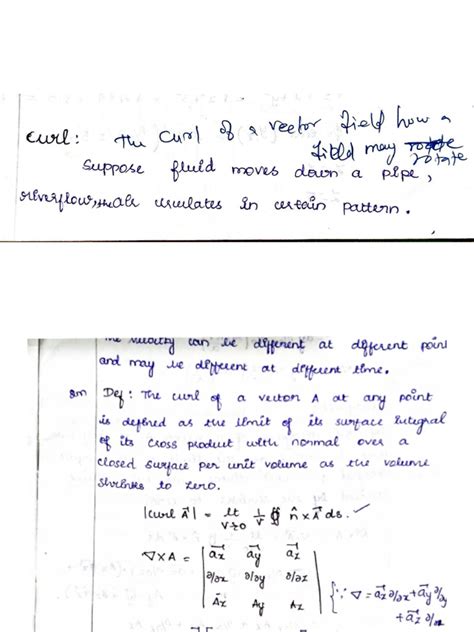 curl: The curl of a vector field how a
field may rotate
rotate
suppose fluid moves down a pipe,
riverflow, circulates in certain pattern.
The velocity can be different at different point
and may be different at different time.
2m Def: The curl of a vector A at any point
is defined as the limit of its surface integral
of its cross product with normal over a
closed surface per unit volume as the volume
shrinks to zero.
|curl A⃗| = lt V→0 1/V ∯ n̂ × A⃗ ds. ✓
∇×A = | a⃗x a⃗y a⃗z |
| ∂/∂x ∂/∂y ∂/∂z | {∵ ∇ = a⃗x ∂/∂x + a⃗y ∂/∂y
| Ax Ay Az | + a⃗z ∂/∂z